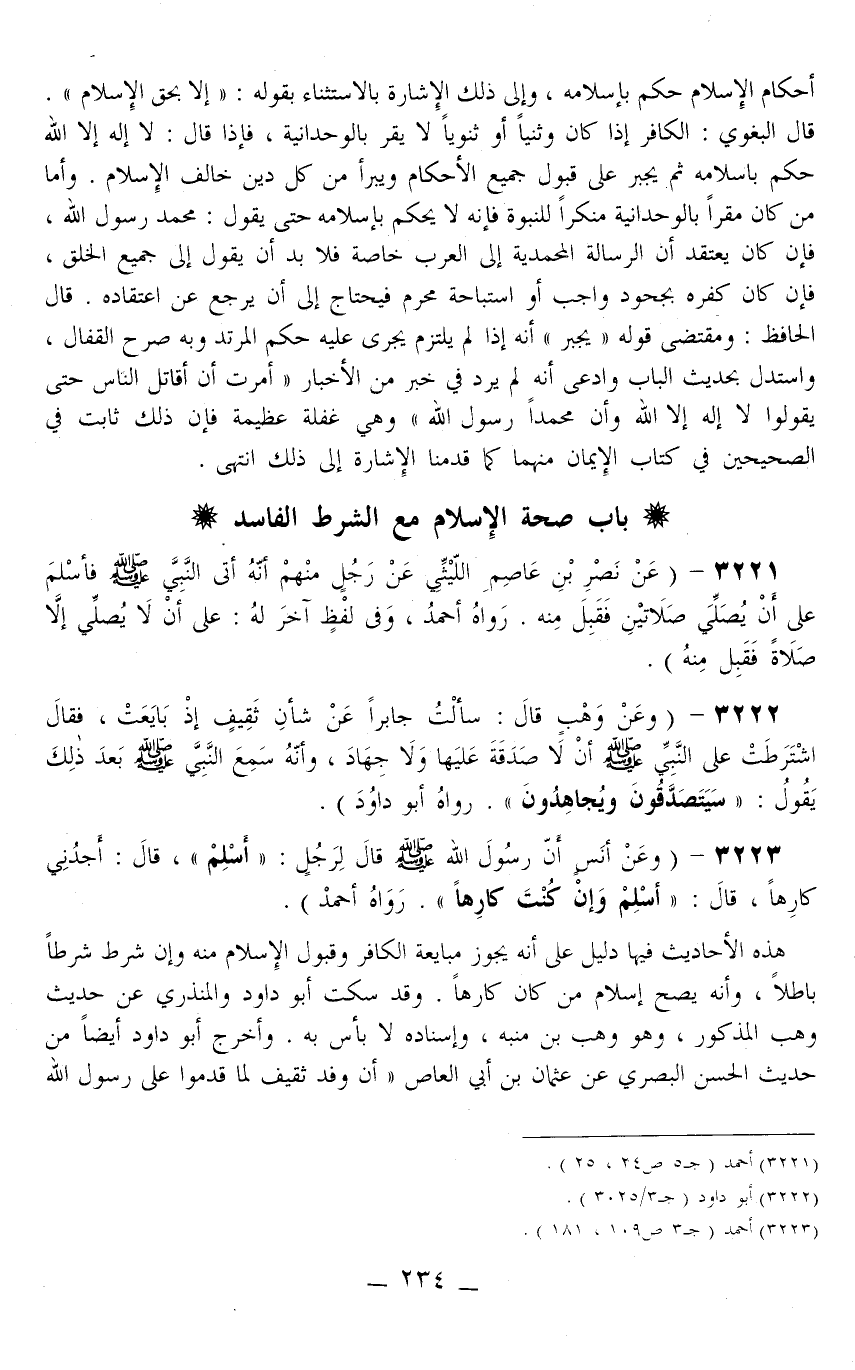 أحكام الإسلام حكم بإسلامه ، وإلى ذلك الإشارة بالاستثناء بقوله : « إلا بحق الإسلام » .
قال البغوي : الكافر إذا كان وثنياً أو ثنوياً لا يقر بالوحدانية ، فإذا قال : لا إله إلا الله
حكم باسلامه ثم يجبر على قبول جميع الأحكام ويبرأ من كل دين خالف الإسلام . وأما
من كان مقراً بالوحدانية منكراً للنبوة فإنه لا يحكم بإسلامه حتى يقول : محمد رسول الله ،
فإن كان يعتقد أن الرسالة المحمدية إلى العرب خاصة فلا بد أن يقول إلى جميع الخلق ،
فإن كان كفره بجحود واجب أو استباحة محرم فيحتاج إلى أن يرجع عن اعتقاده . قال
الحافظ : ومقتضى قوله « يجبر » أنه إذا لم يلتزم يجرى عليه حكم المرتد وبه صرح القفال ،
واستدل بحديث الباب وادعى أنه لم يرد في خبر من الأخبار « أمرت أن أقاتل الناس حتى
يقولوا لا إله إلا الله وأن محمداً رسول الله » وهي غفلة عظيمة فإن ذلك ثابت في
الصحيحين في كتاب الإيمان منهما كما قدمنا الإشارة إلى ذلك انتهى .
باب صحة الإسلام مع الشرط الفاسد
٣٢٢١ – ( عَنْ نَصْرِ بْنِ عَاصِمِ اللَّيْثِّي عَنْ رَجُلٍ مِنْهمْ أنَّهُ أتى النَّبِيَّ ﷺ فأسْلمَ
على أَنْ يُصَلِّيَ صَلَاتيْنِ فَقَبِلَ مِنه . رَواهُ أحمدُ ، وَفى لفْظٍ آخرَ لهُ : على أنْ لَا يُصلِّي إلَّا
صَلَاةً فَقَبِل مِنهُ ) .
٣٢٢٢ – ( وعَنْ وَهْبٍ قالَ : سألْتُ جابراً عَنْ شأنِ ثَقِيفٍ إذْ بَايَعَتْ ، فقالَ
اشْتَرَطَتْ على النَّبِيِّ ﷺ أنْ لَا صَدَقَةَ عَلَيها وَلَا جِهَادَ ، وأنَّهُ سَمِعَ النَّبِيَّ ﷺ بَعدَ ذٰلِكَ
يَقُولُ : « سَيَتَصَدَّقُونَ ويُجاهِدُونَ » . رواهُ أبو داوُدَ ) .
٣٢٢٣ – ( وعَنْ أنَس أَنّ رسُولَ الله ﷺ قالَ لِرَجُلٍ : « أَسْلِمْ » ، قالَ : أَجدُنِي
كارِهاً ، قالَ : « أسْلِمْ وَإنْ كُنْتَ كارِهاً » . رَوَاهُ أحمدْ ) .
هذه الأحاديث فيها دليل على أنه يجوز مبايعة الكافر وقبول الإسلام منه وإن شرط شرطاً
باطلاً ، وأنه يصح إسلام من كان كارهاً . وقد سكت أبو داود والمنذري عن حديث
وهب المذكور ، وهو وهب بن منبه ، وإسناده لا بأس به . وأخرج أبو داود أيضاً من
حديث الحسن البصري عن عثمان بن أبي العاص « أن وفد ثقيف لما قدموا على رسول الله
(٣٢٢١) أحمد ( جـ٥ ص٢٤ ، ٢٥ ) .
(٣٢٢٢) أبو داود ( جـ٣/٣٠٢٥ ) .
(٣٢٢٣) أحمد ( جـ٣ ص١٠٩ ، ١٨١ ) .
– ٢٣٤ –